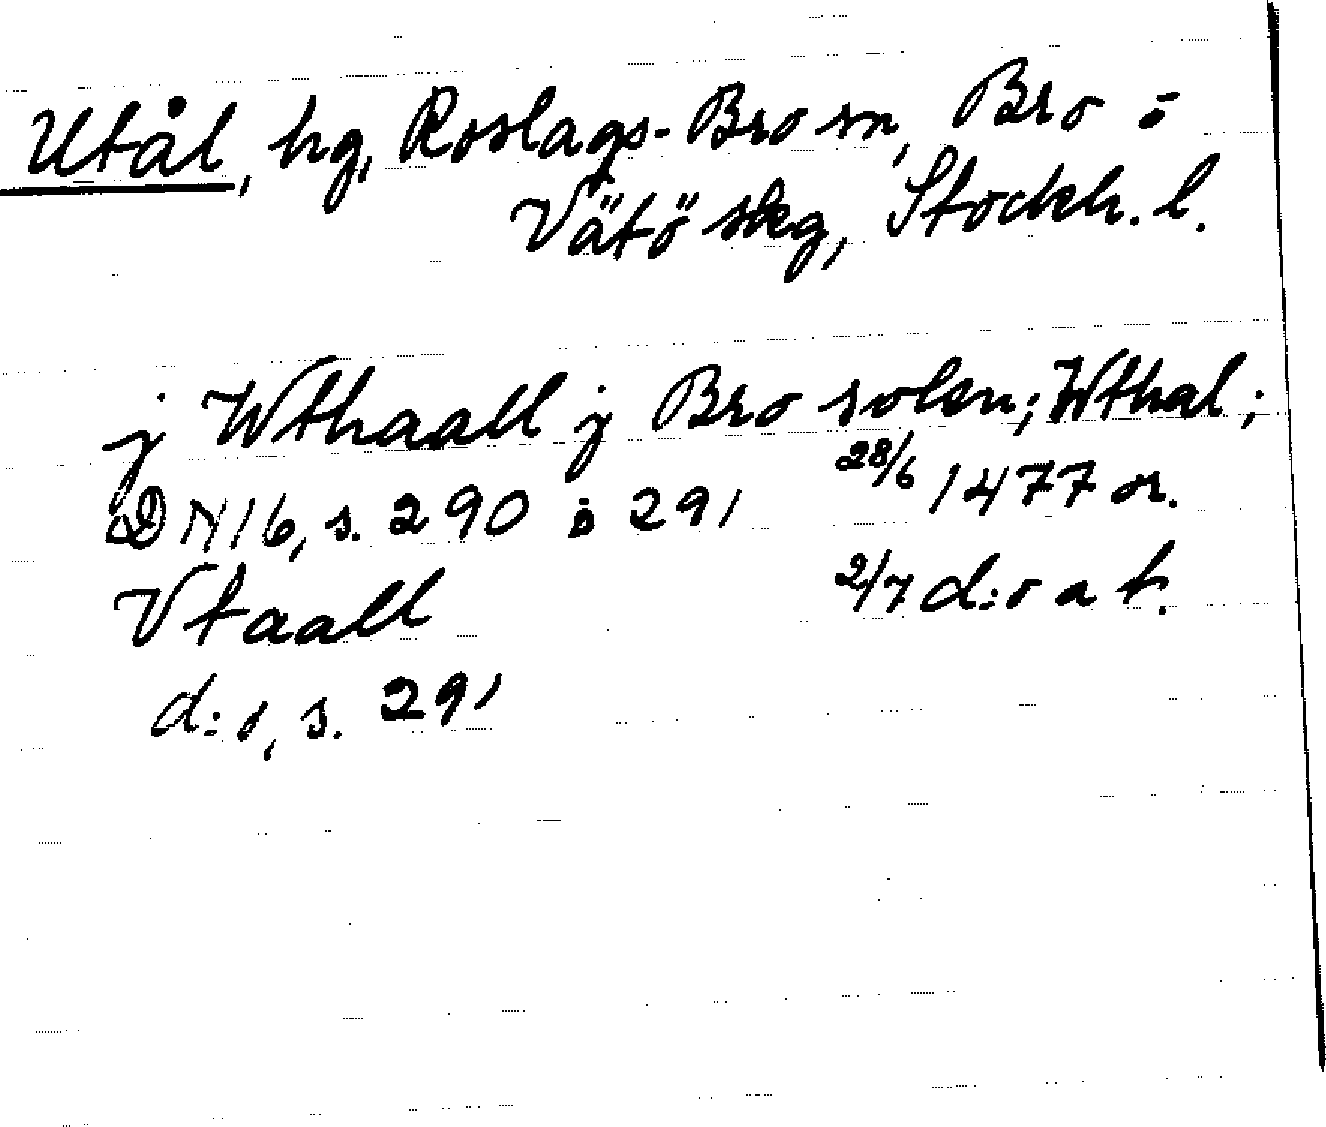 Utål, hg, Roslags-Bro sn, Bro o
Vätö skg, Stockh. l.
j Wthaall j Bro solen; Wthal;
DN 16, s. 290 o 291 28/6 1477 or.
Vtaall 2/7 d:o a t.
d:o, s. 291